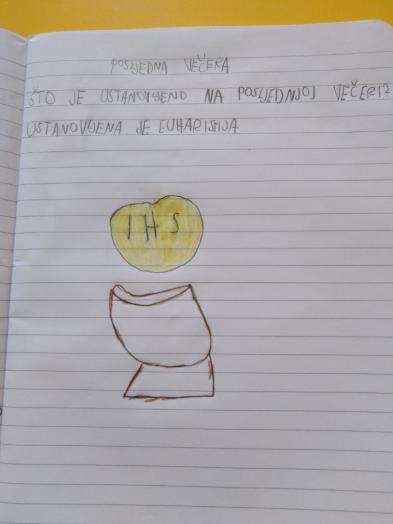 POSLJEDNA VEČERA
ŠTO JE USTANOVLJENO NA POSLJEDNJOJ VEČERI?
USTANOVLJENA JE EUHARISTIJA
IHS